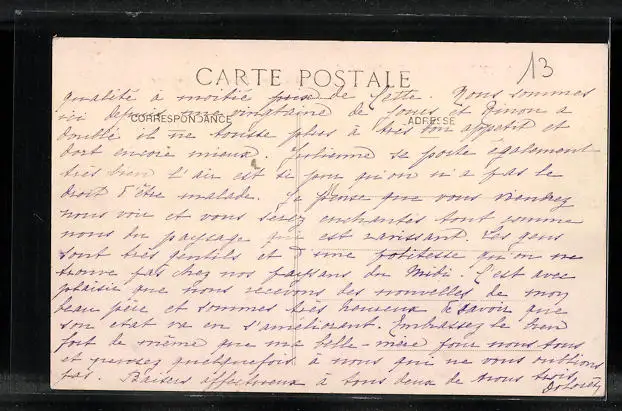 13
CARTE POSTALE
CORRESPONDANCE
ADRESSE
qualité à moitié prix de Cette. Nous sommes
ici depuis une vingtaine de jours et Simon a
doublé il ne tousse plus a très bon appetit et
dort encore mieux. Julienne se porte également
très bien L'air est si pur qu'on n'a pas le
droit d'être malade. Je pense que vous viendrez
nous voir et vous serez enchantés tout comme
nous du paysage qui est ravissant. Les gens
sont très gentils et d'une politesse qu'on ne
trouve pas chez nos paysans du Midi. C'est avec
plaisir que nous recevons des nouvelles de mon
beau père et sommes très heureux de savoir que
son etat va en s'améliorant. Embrassez le bien
fort de même que ma belle-mère pour nous tous
et pensez quelquefois à nous qui ne vous oublions
pas. Baisers affectueux à tous deux de nous trois